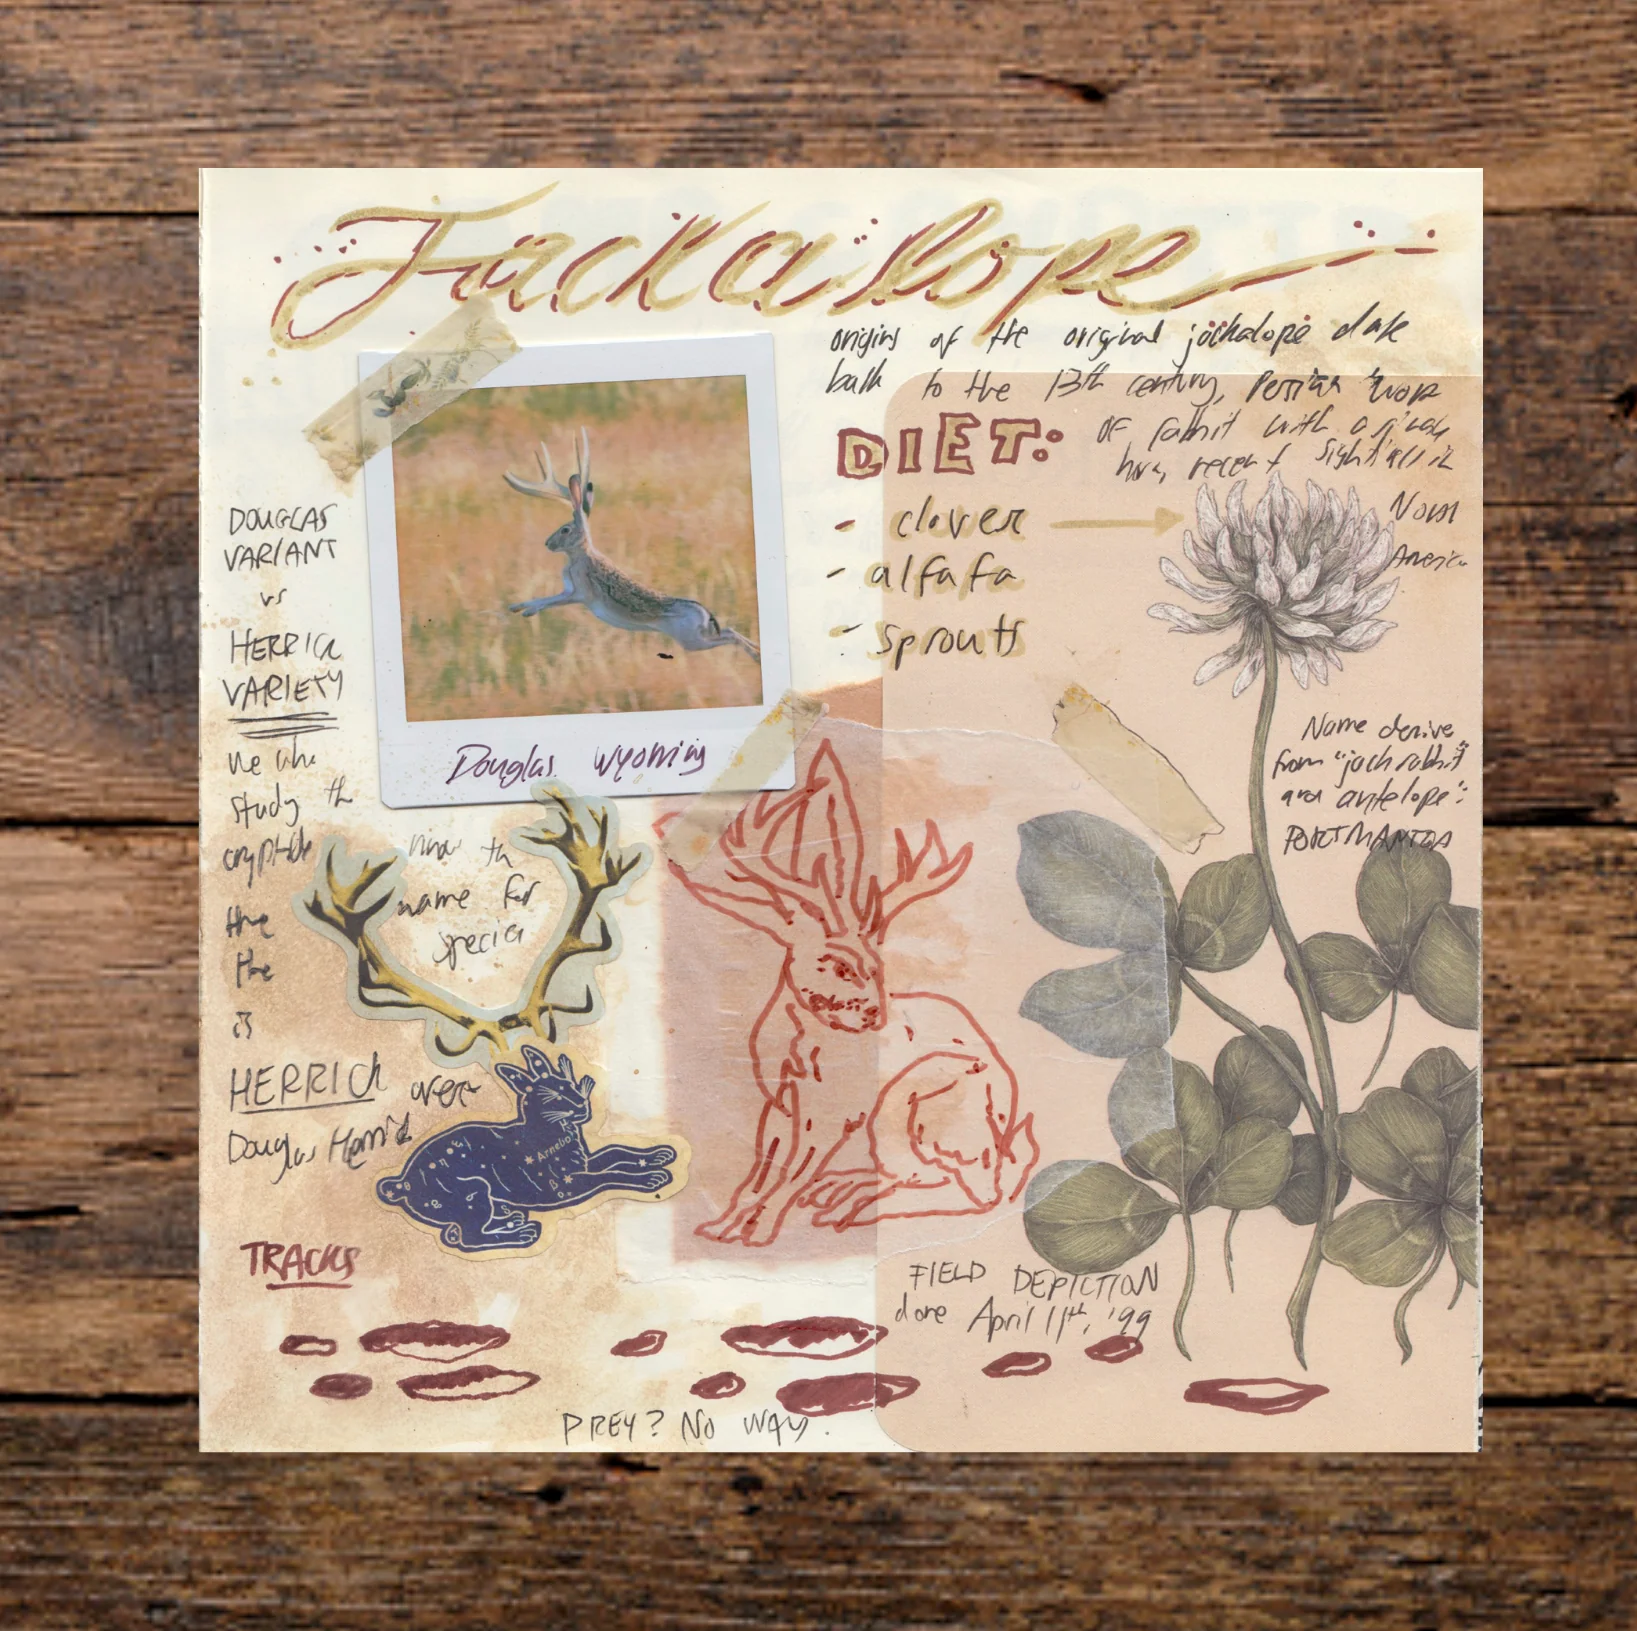 Jackalope
origins of the original jackalope date
back to the 13th century, Persian work
of rabbit with a single
horn, recent sightings in
North
America
DIET:
- clover
- alfafa
- sprouts
DOUGLAS
VARIANT
vs
HERRICK
VARIETY
we who
study the
cryptids
the
the
is
HERRICK over
Douglas Herrick
know th
name for
species
Douglas Wyoming
Name derive
from "jack rabbit"
and antelope":
PORTMANTOA
Arnebo
FIELD DEPICTION
done April 11th, '99
TRACKS
PREY? NO WAY.